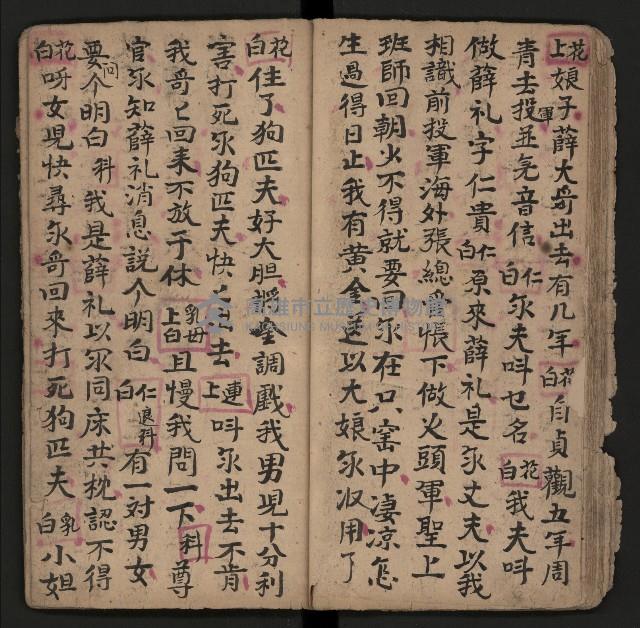 花上娘子薛大哥出去有几年花白自貞觀五年周
青去投軍並無音信仁白尔夫叫乜名花白我夫叫
做薛礼字仁貴仁白原來薛礼是尔丈夫以我
相識前投軍海外張總兵帳下做火頭軍聖上
班師回朝少不得就要回尔在只窑中凄凉怎
生過得日止我有黄金送以大娘尔收用了
花白住了狗匹夫好大胆調戲我男児十分利
害打死尔狗匹夫快出去連上叫尔出去不肯
我哥〻回来不放于休乳母上白且慢我問一下科尊
官尔知薛礼消息説个明白仁白退科有一对男女
要問个明白科我是薛礼以尔同床共枕認不得
花白呀女児快尋尔哥回来打死狗匹夫乳白小姐
高雄市立歷史博物館
KAOHSIUNG MUSEUM OF HISTORY